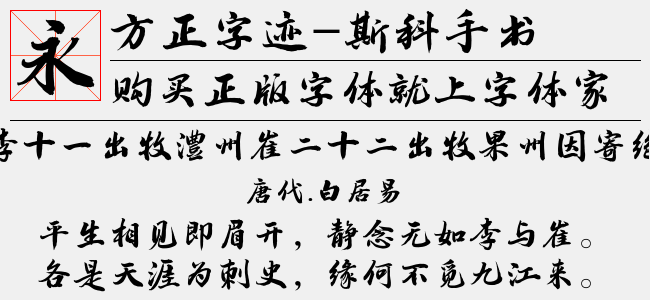 永
方正字迹-斯科手书
购买正版字体就上字体家
李十一出牧澧州崔二十二出牧果州因寄绝
唐代.白居易
平生相见即眉开，静念无如李与崔。
各是天涯为刺史，缘何不觅九江来。